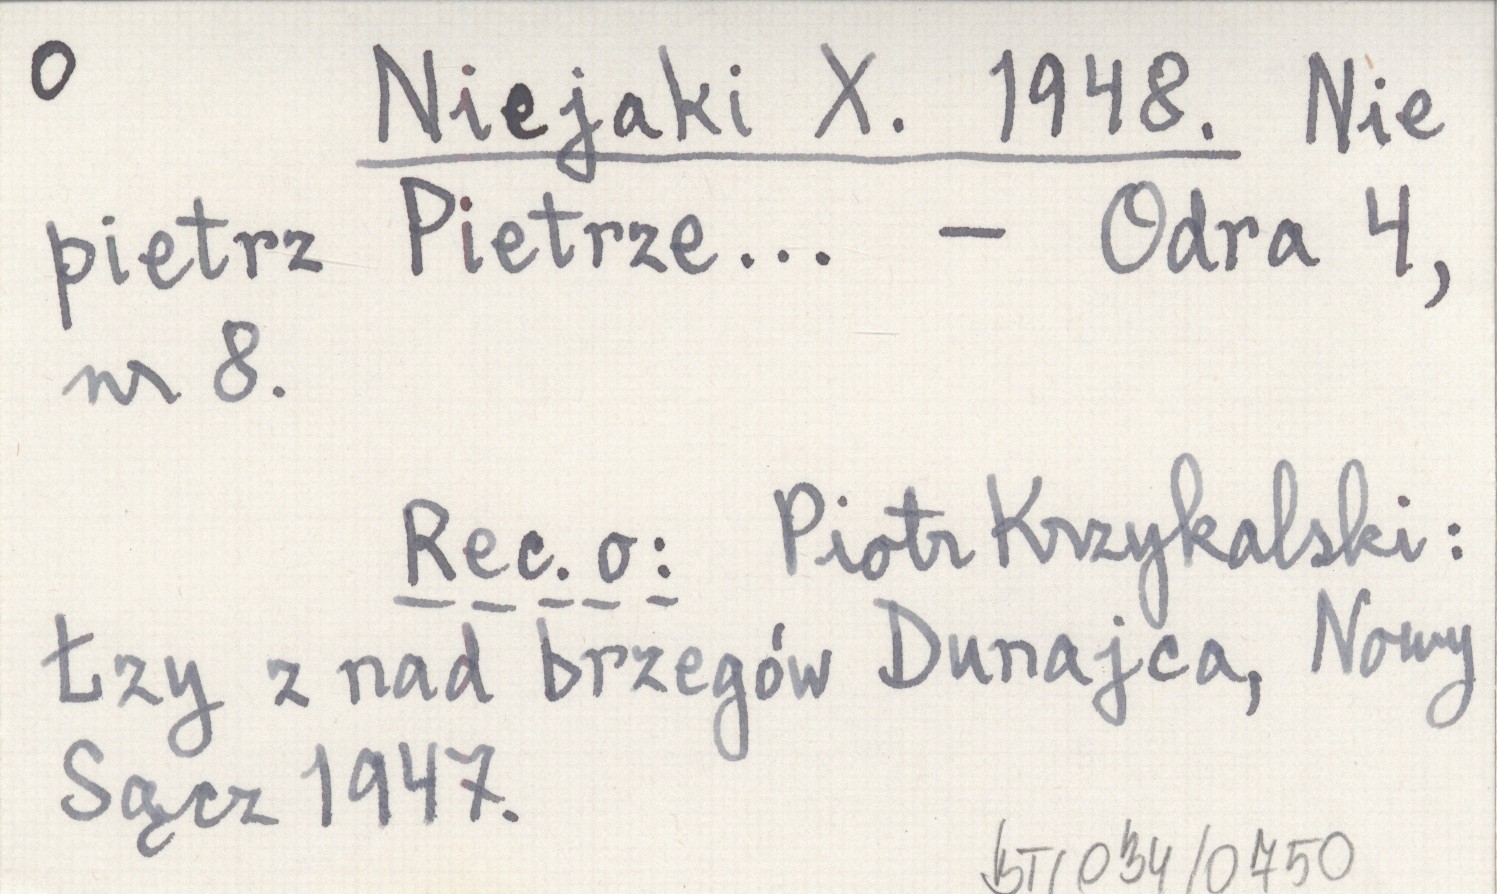 O Niejaki X. 1948. Nie
pietrz Pietrze... - Odra 4,
nr 8.
Rec. o: Piotr Krzykalski:
Łzy z nad brzegów Dunajca, Nowy
Sącz 1947.
034/0750